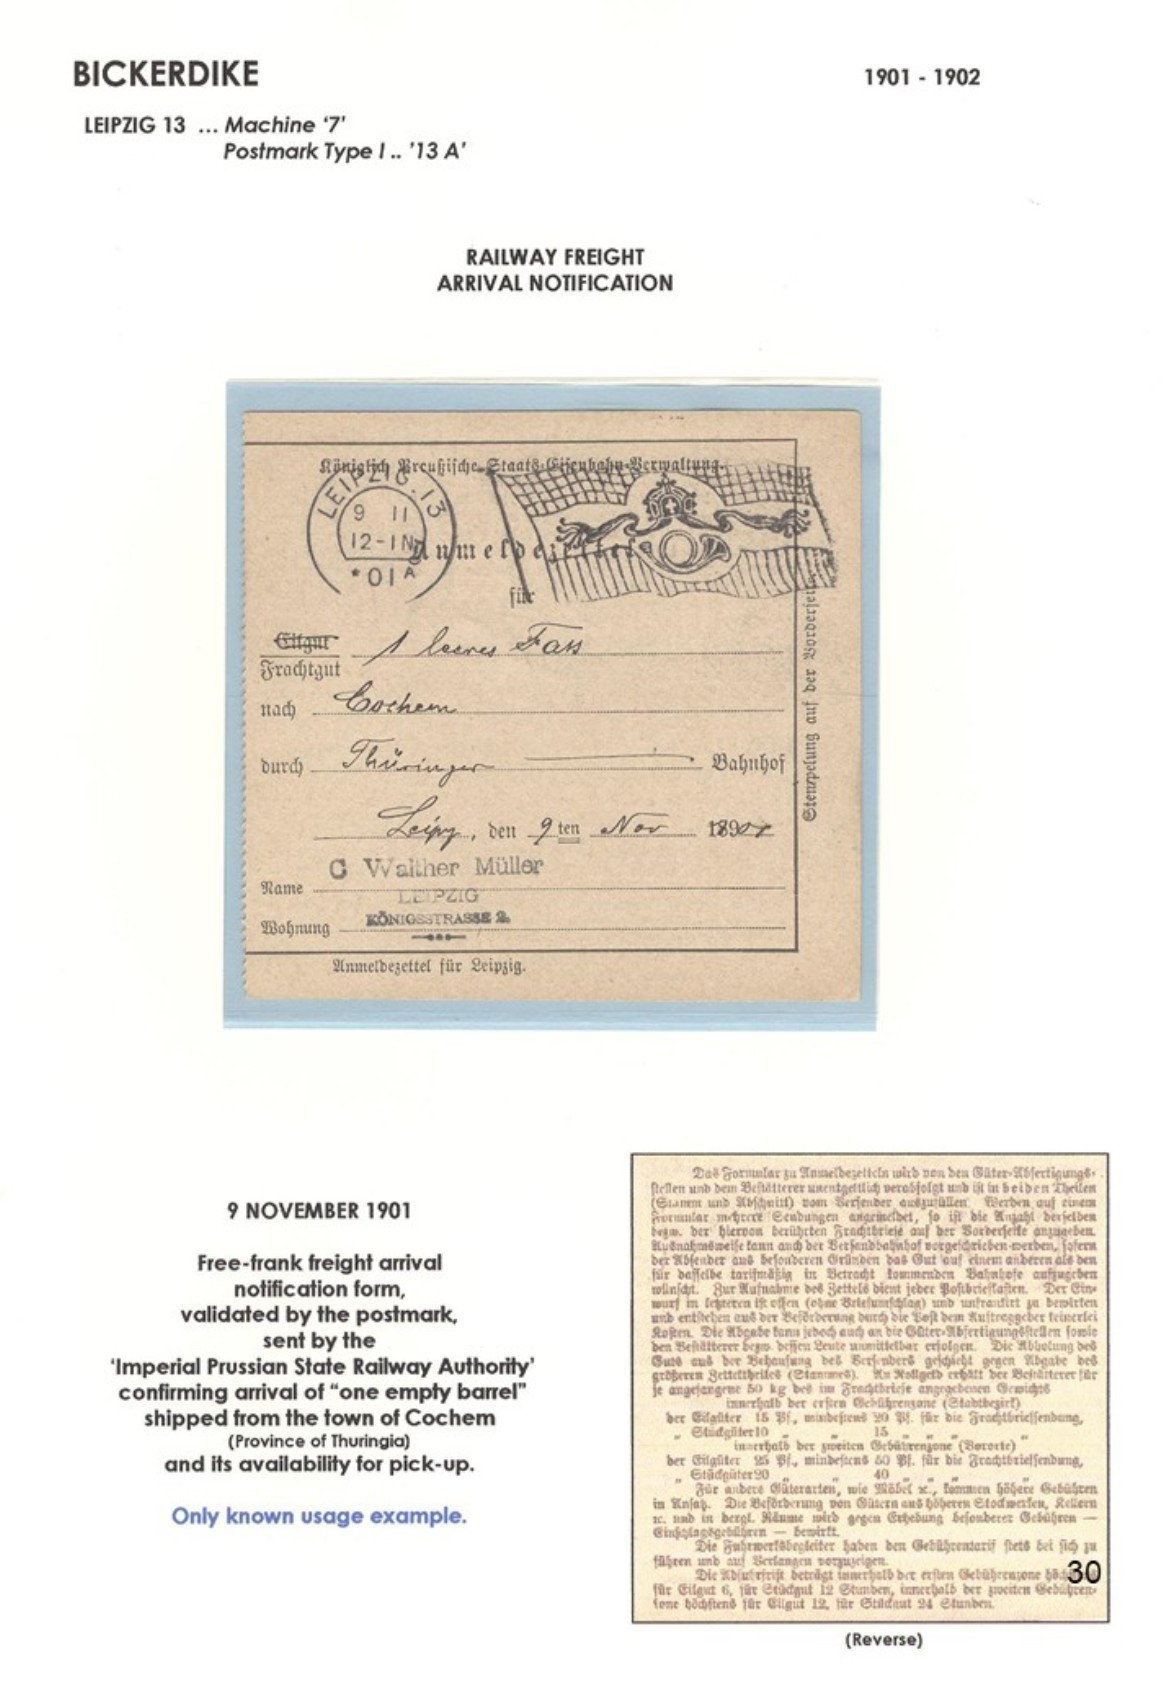 BICKERDIKE
1901 - 1902
LEIPZIG 13 ... Machine ‘7’
Postmark Type I .. ’13 A’
RAILWAY FREIGHT
ARRIVAL NOTIFICATION
Königlich Preußische Staats-Eisenbahn-Verwaltung.
LEIPZIG 13
9 11
12-1N
*01A
Anmeldezettel
für
Eilgut
Frachtgut
1 leeres Fass
nach Cochem
durch Thüringer Bahnhof
Leipzg, den 9ten Nov 1901
C Walther Müller
Name
LEIPZIG
Wohnung KÖNIGSSTRASSE 2.
Anmeldezettel für Leipzig.
Stempelung auf der Vorderseite.
9 NOVEMBER 1901
Free-frank freight arrival
notification form,
validated by the postmark,
sent by the
'Imperial Prussian State Railway Authority'
confirming arrival of “one empty barrel”
shipped from the town of Cochem
(Province of Thuringia)
and its availability for pick-up.
Only known usage example.
Das Formular zu Anmeldezetteln wird von den Güter-Abfertigungs-
stellen und dem Bestätterer unentgeltlich verabfolgt und ist in beiden Theilen
(Stamm und Abschnitt) vom Versender auszufüllen. Werden auf einem
Formular mehrere Sendungen angemeldet, so ist die Anzahl derselben
bezw. der hiervon berührten Frachtbriefe auf der Vorderseite anzugeben.
Ausnahmsweise kann auch der Versandbahnhof vorgeschrieben werden, sofern
der Absender aus besonderen Gründen das Gut auf einem anderen als den
für dasselbe tarifmäßig in Betracht kommenden Bahnhofe aufzugeben
wünscht. Zur Aufnahme des Zettels dient jeder Postbriefkasten. Der Ein-
wurf in letzteren ist offen (ohne Briefumschlag) und unfrankirt zu bewirken
und entstehen aus der Beförderung durch die Post dem Auftraggeber keinerlei
Kosten. Die Abgabe kann jedoch auch an die Güter-Abfertigungsstellen sowie
den Bestätterer bezw. dessen Leute unmittelbar erfolgen. Die Abholung des
Guts aus der Behausung des Versenders geschieht gegen Abgabe des
größeren Zetteltheiles (Stammes). An Rollgeld erhält der Bestätterer für
je angefangene 50 kg des im Frachtbriefe angegebenen Gewichts
innerhalb der ersten Gebührenzone (Stadtbezirk)
der Eilgüter 15 Pf., mindestens 20 Pf. für die Frachtbriefsendung,
„ Stückgüter 10 „ „ 15 „ „ „ „
innerhalb der zweiten Gebührenzone (Vororte)
der Eilgüter 25 Pf., mindestens 50 Pf. für die Frachtbriefsendung,
„ Stückgüter 20 „ „ 40 „ „ „ „
Für andere Güterarten, wie Möbel ꝛc., kommen höhere Gebühren
in Ansatz. Die Beförderung von Gütern aus höheren Stockwerken, Kellern
ꝛc. und in dergl. Räume wird gegen Erhebung besonderer Gebühren —
Einschlagsgebühren — bewirkt.
Die Fuhrwerksbegleiter haben den Gebührentarif stets bei sich zu
führen und auf Verlangen vorzuzeigen.
Die Abfuhrfrist beträgt innerhalb der ersten Gebührenzone
für Eilgut 6, für Stückgut 12 Stunden, innerhalb der zweiten Gebühren-
zone höchstens für Eilgut 12, für Stückgut 24 Stunden.
30
(Reverse)